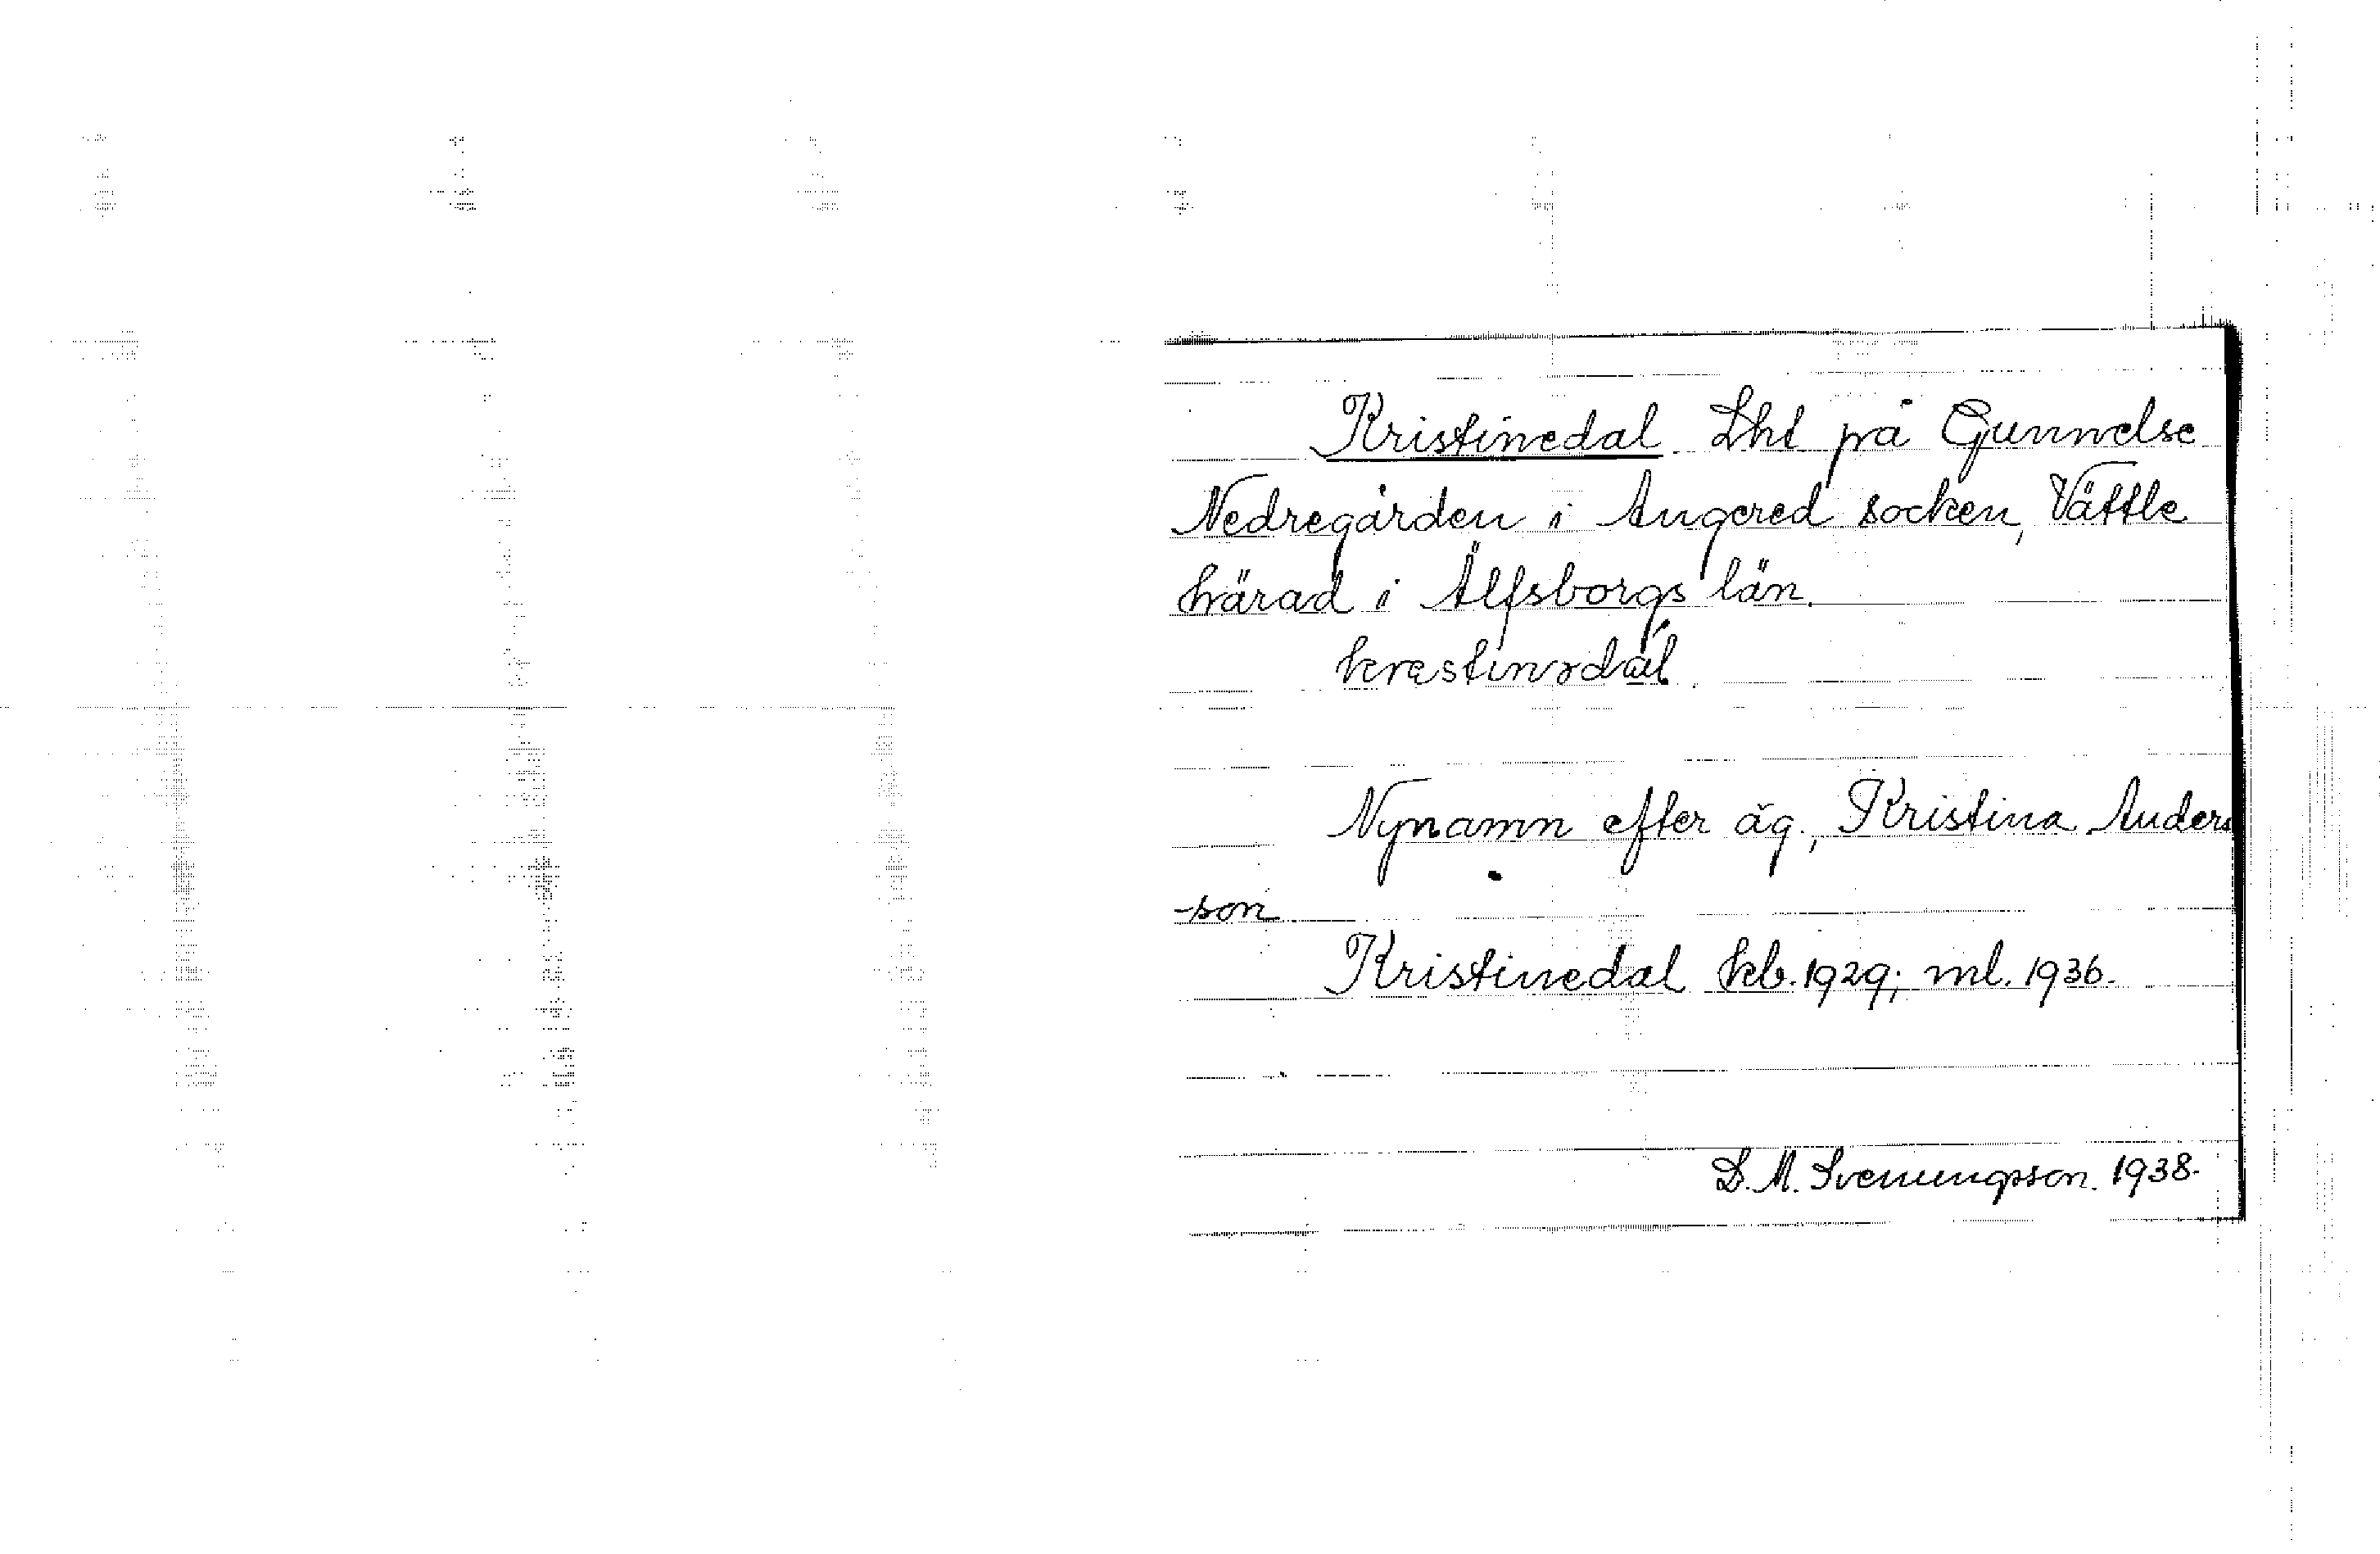 Kristinedal Lht på Gunnelse
Nedregården i Angered socken, Vättle
härad i Älfsborgs län.
krestinədál.
Nynamn efter äg., Kristina Anders
-son
Kristinedal kb. 1929; ml. 1936.
D. M. Svenungsson. 1938.